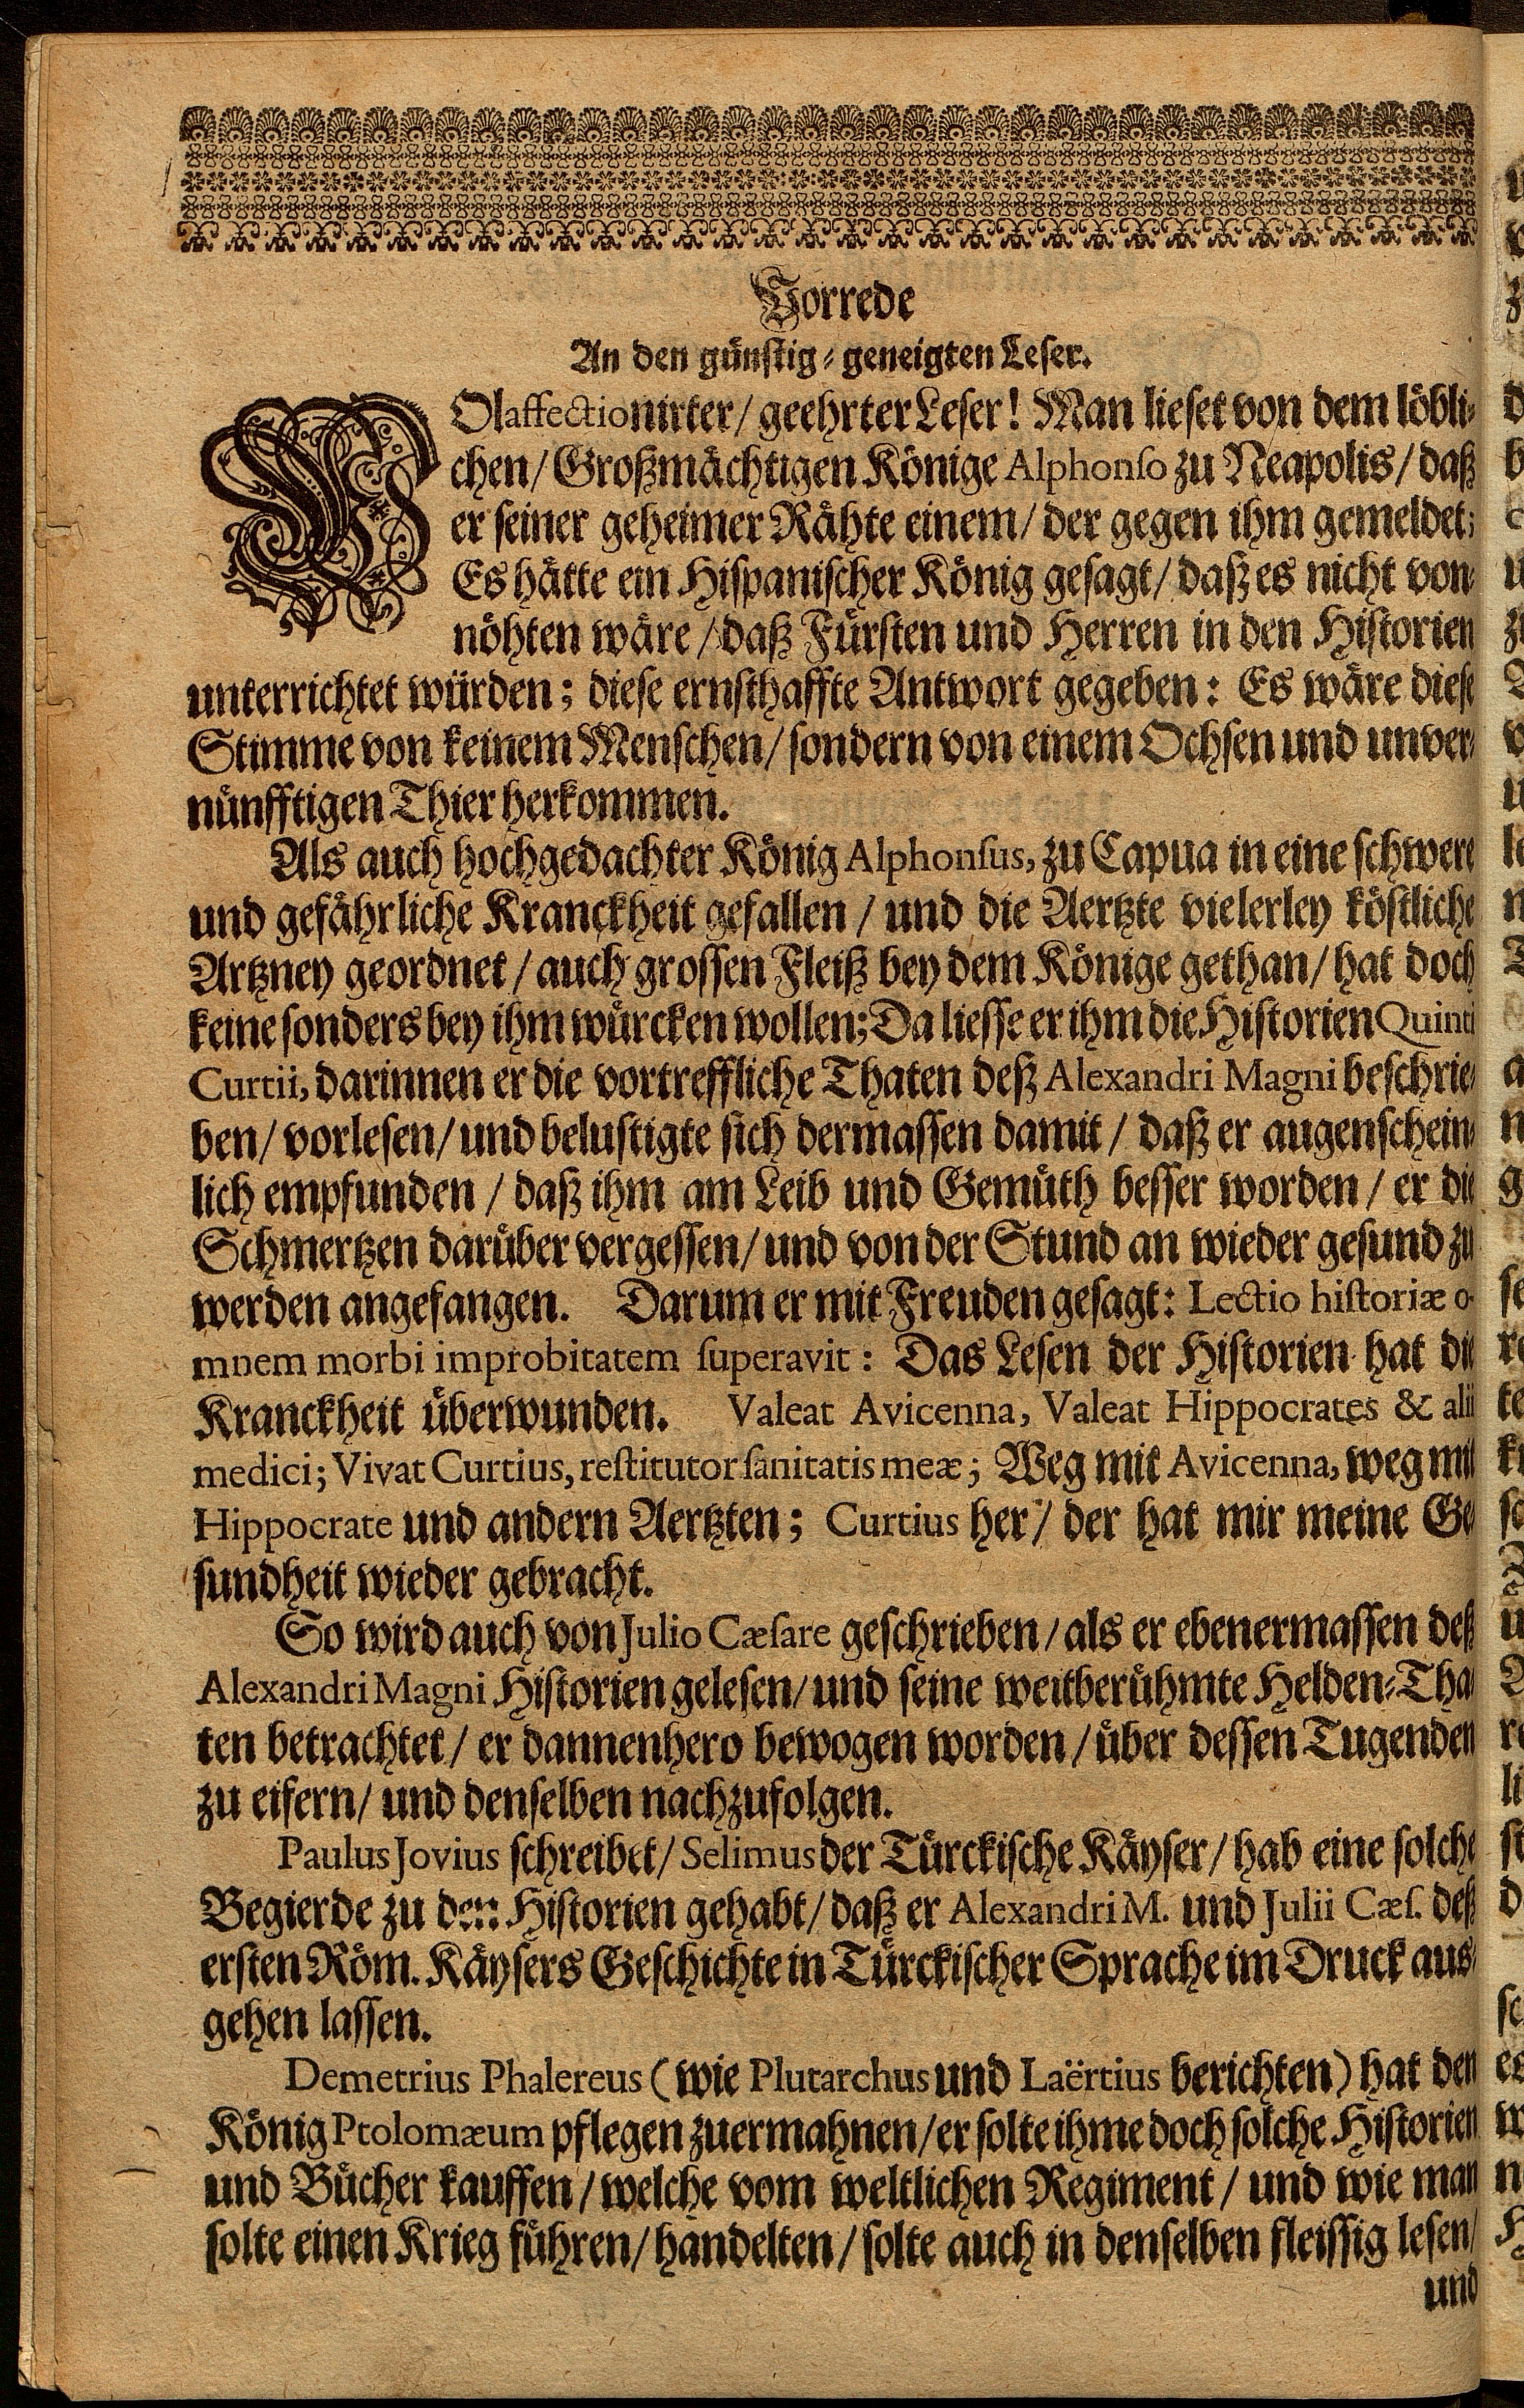 Vorrede
An den günstig-geneigten Leser.
WOlaffectionirter/ geehrter Leser! Man lieset von dem löbli-
chen/ Großmächtigen Könige Alphonso zu Neapolis/ daß
er seiner geheimer Rähte einem/ der gegen ihm gemeldet;
Es hätte ein Hispanischer König gesagt/ daß es nicht von-
nöhten wäre/ daß Fürsten und Herren in den Historien
unterrichtet würden; diese ernsthaffte Antwort gegeben: Es wäre diese
Stimme von keinem Menschen/ sondern von einem Ochsen und unver-
nünfftigen Thier herkommen.
Als auch hochgedachter König Alphonsus, zu Capua in eine schwere
und gefährliche Kranckheit gefallen/ und die Aertzte vielerley köstliche
Artzney geordnet/ auch grossen Fleiß bey dem Könige gethan/ hat doch
keine sonders bey ihm würcken wollen; Da liesse er ihm die Historien Quinti
Curtii, darinnen er die vortreffliche Thaten deß Alexandri Magni beschrie-
ben/ vorlesen/ und belustigte sich dermassen damit/ daß er augenschein-
lich empfunden/ daß ihm am Leib und Gemüth besser worden/ er die
Schmertzen darüber vergessen/ und von der Stund an wieder gesund zu
werden angefangen. Darum er mit Freuden gesagt: Lectio historiæ o-
mnem morbi improbitatem superavit: Das Lesen der Historien hat die
Kranckheit überwunden. Valeat Avicenna, Valeat Hippocrates & alii
medici; Vivat Curtius, restitutor sanitatis meæ; Weg mit Avicenna, weg mit
Hippocrate und andern Aertzten; Curtius her/ der hat mir meine Ge-
sundheit wieder gebracht.
So wird auch von Julio Cæsare geschrieben/ als er ebenermassen deß
Alexandri Magni Historien gelesen/ und seine weitberühmte Helden-Tha-
ten betrachtet/ er dannenhero bewogen worden/ über dessen Tugenden
zu eifern/ und denselben nachzufolgen.
Paulus Jovius schreibet/ Selimus der Türckische Käyser/ hab eine solche
Begierde zu den Historien gehabt/ daß er Alexandri M. und Julii Cæs. deß
ersten Röm. Käysers Geschichte in Türckischer Sprache im Druck aus-
gehen lassen.
Demetrius Phalereus (wie Plutarchus und Laërtius berichten) hat den
König Ptolomæum pflegen zuermahnen/ er solte ihme doch solche Historien
und Bücher kauffen/ welche vom weltlichen Regiment/ und wie man
solte einen Krieg führen/ handelten/ solte auch in denselben fleissig lesen/
und